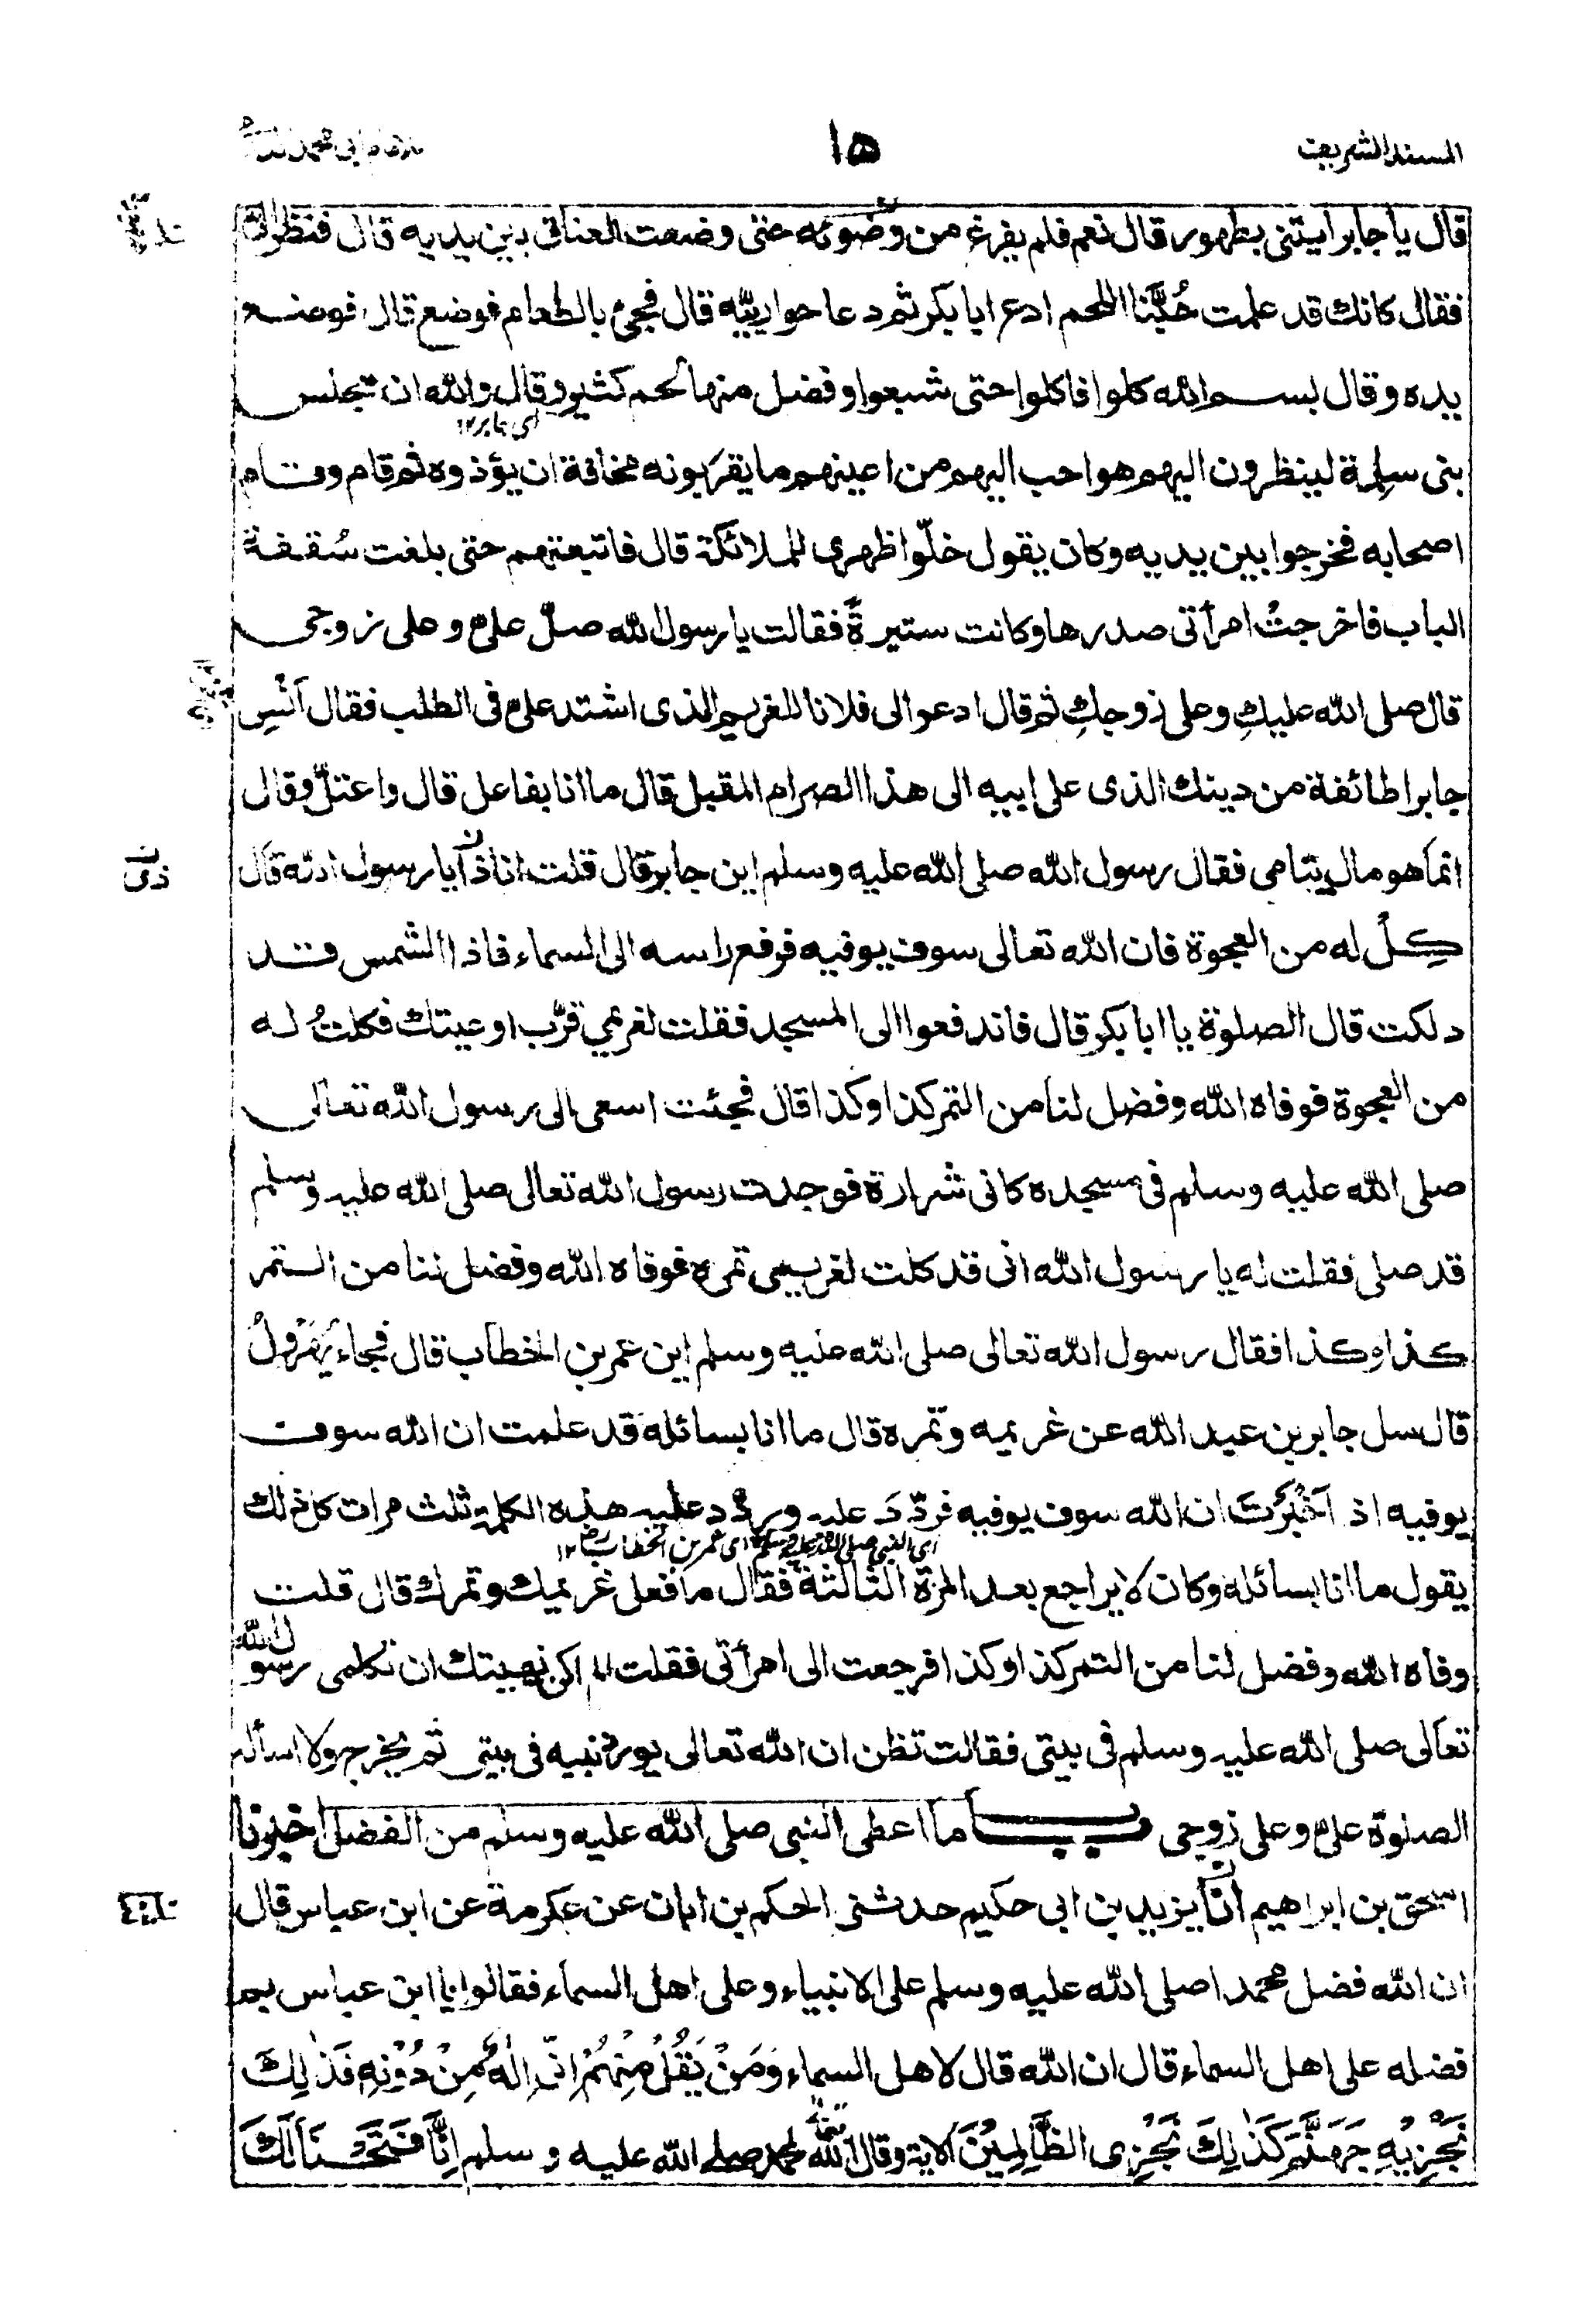 المسند الشريف
١٥
للامام ابى محمد
قال يا جابر ايتنى بطهور قال نعم فلم يفرغ من وضوئه حتى وضعت العناق بين يديه قال فنظر الىّ
فقال كانك قد علمت حُبَّنا اللحم ادع ابا بكر ثم دعا حوارييّه قال فجئ بالطعام فوضع قال فوضع
يده وقال بسم الله كلوا فاكلوا حتى شبعوا وفضل منها لحم كثير وقال والله ان مجلس
اى جابر ١٢
بنى سلِمة لينظرون اليهم هو احب اليهم من اعينهم ما يقرَبونه مخافة ان يؤذوه ثم قام وقام
اصحابه فخرجوا بين يديه وكان يقول خلّوا ظهرى للملائكة قال فاتبعتهم حتى بلغت سُقفة
الباب فاخرجتْ امرأتى صدرها وكانت ستيرةً فقالت يا رسول الله صلّ علىّ وعلى زوجى
قال صلى الله عليكِ وعلى زوجكِ ثم قال ادعوا لى فلانا للغريم الذى اشتد علىّ فى الطلب فقال آنْسِ
جابرا طائفة من دينك الذى على ابيه الى هذا الصرام المقبل قال ما انا بفاعل قال واعتلّ وقال
انما هو مال يتامى فقال رسول الله صلى الله عليه وسلم اين جابر قال قلت انا ذا يا رسول الله قال
ذى
كِلْ له من العجوة فان الله تعالى سوف يوفيه فرفع راسه الى السماء فاذا الشمس قد
دلكت قال الصلوة يا ابا بكر قال فاندفعوا الى المسجد فقلت لغريمي قرّب اوعيتك فكلتُ له
من العجوة فوفاه الله وفضل لنا من التمر كذا وكذا قال فجئت اسعى الى رسول الله تعالى
صلى الله عليه وسلم فى مسجده كانى شرارة فوجدت رسول الله تعالى صلى الله عليه وسلم
قد صلى فقلت له يا رسول الله انى قد كلت لغريمى تمره فوفاه الله وفضل لنا من التمر
كذا وكذا فقال رسول الله تعالى صلى الله عليه وسلم اين عمر بن الخطاب قال فجاء يُهَرْوِلُ
قال سل جابر بن عبد الله عن غريمه وتمره قال ما انا بسائله قد علمت ان الله سوف
يوفيه اذ اَخْبَرْتَ ان الله سوف يوفيه فردّدَ عليه وردّد عليه هذه الكلمة ثلث مرات كل ذلك
اى النبى صلى الله عليه وسلم اى عمر بن الخطاب ١٢
يقول ما انا بسائله وكان لا يراجع بعد المرّة الثالثة فقال ما فعل غريمك وتمرك قال قلت
وفاه الله وفضل لنا من التمر كذا وكذا فرجعت الى امرأتى فقلت الم اكن نهيتك ان تكلمى رسول الله
تعالى صلى الله عليه وسلم فى بيتى فقالت تظن ان الله تعالى يورد نبيه فى بيتى ثم يخرج ولا اسأله
الصلوة علىّ وعلى زوجى باب ما اعطى النبى صلى الله عليه وسلم من الفضل اخبرنا
اسحق بن ابراهيم انا يزيد بن ابى حكيم حدثنى الحكم بن ابان عن عكرمة عن ابن عباس قال
ان الله فضل محمدا صلى الله عليه وسلم على الانبياء وعلى اهل السماء فقالوا يا ابن عباس بم
فضله على اهل السماء قال ان الله قال لاهل السماء وَمَنْ يَّقُلْ مِنْهُمْ اِنِّىْ اِلٰهٌ مِّنْ دُوْنِهٖ فَذٰلِكَ
نَجْزِيْهِ جَهَنَّمَ كَذٰلِكَ نَجْزِى الظّٰلِمِيْنَ الاية وقال الله لمحمد صلى الله عليه وسلم اِنَّا فَتَحْنَا لَكَ